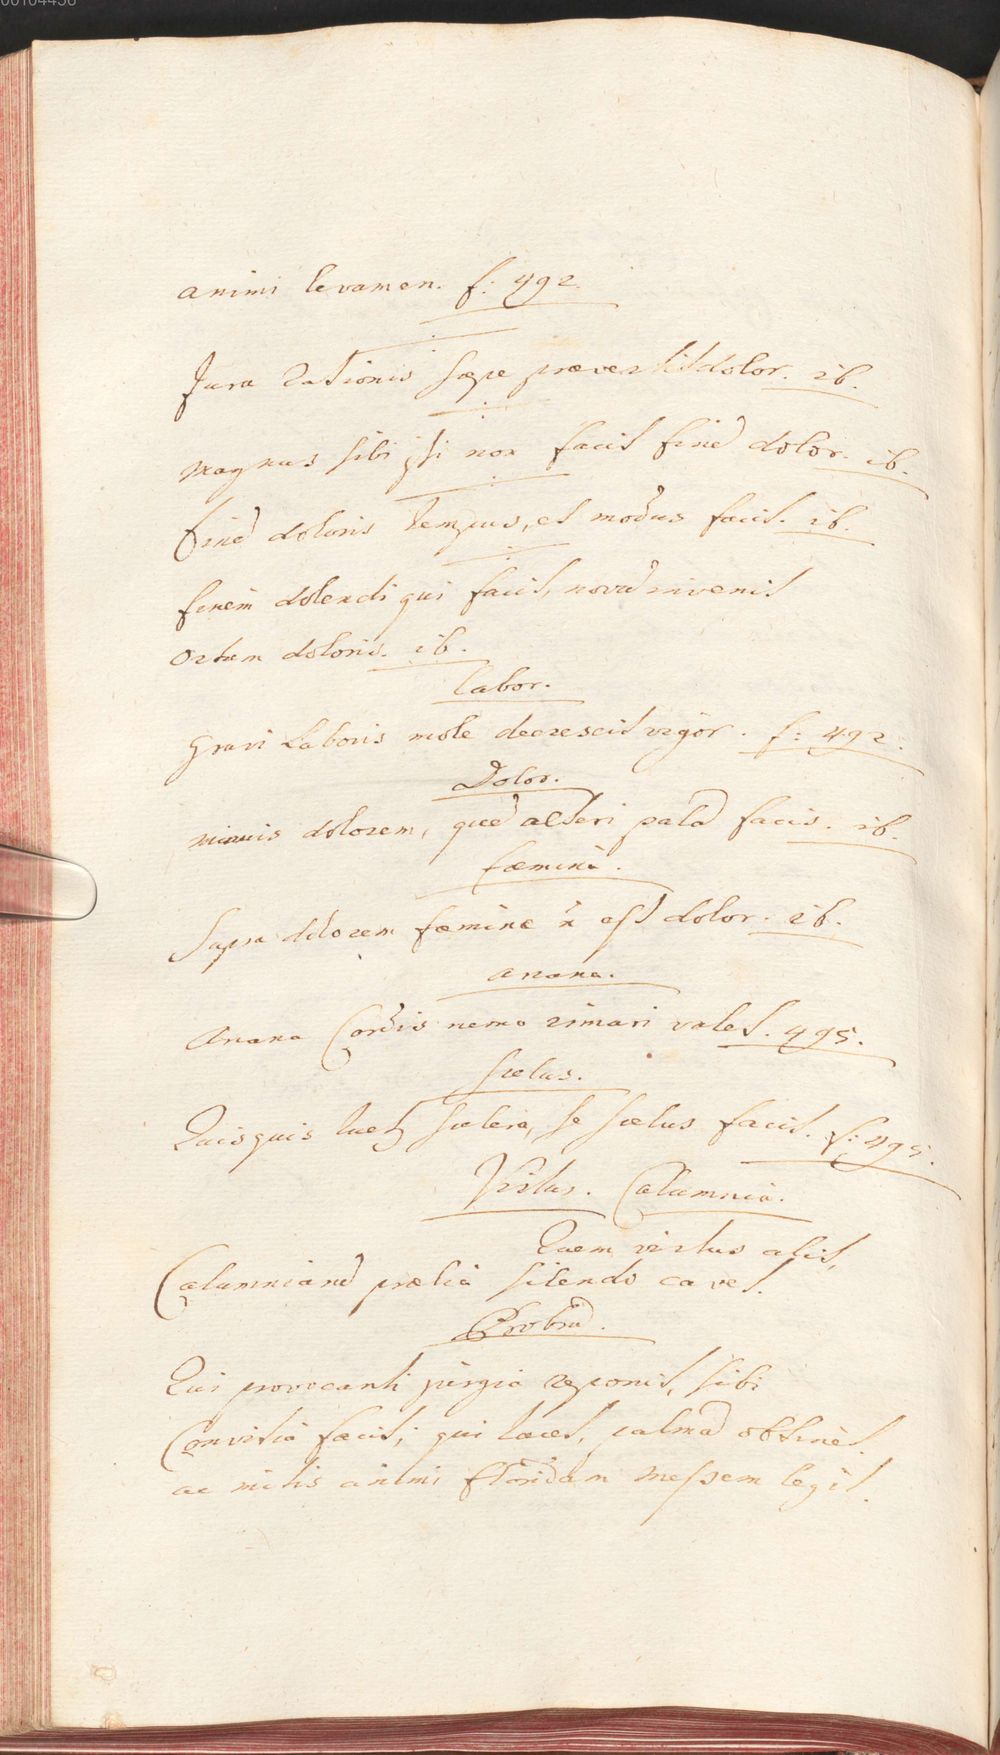 00104436
animi levamen. f: 492.
Jura rationis sæpe prævertit dolor. ib.
magnus sibi ipsi non facit finē dolor. ib.
finē doloris tempus, et modus facit. ib.
finem dolendi qui facit, novū invenit
ortum doloris. ib.
Labor.
gravi Laboris mole decrescit vigor. f: 492.
Dolor.
minuis dolorem, quē alteri palā facis. ib.
fæmina.
Supra dolorem fæminæ n̄ est dolor. ib.
arcana.
arcana Cordis nemo rimari valet. 495.
scelus.
Quisquis tuetʒ scelera, se scelus facit. f: 495.
Virtus. Calumnia.
Quem virtus alit,
Calumniarū prælia silendo cavet.
Probrū.
Qui provocanti jurgia reponit, sibi
Convitia facit; qui tacet, palmā obtinet.
ac mitis animi floridam messem legit.